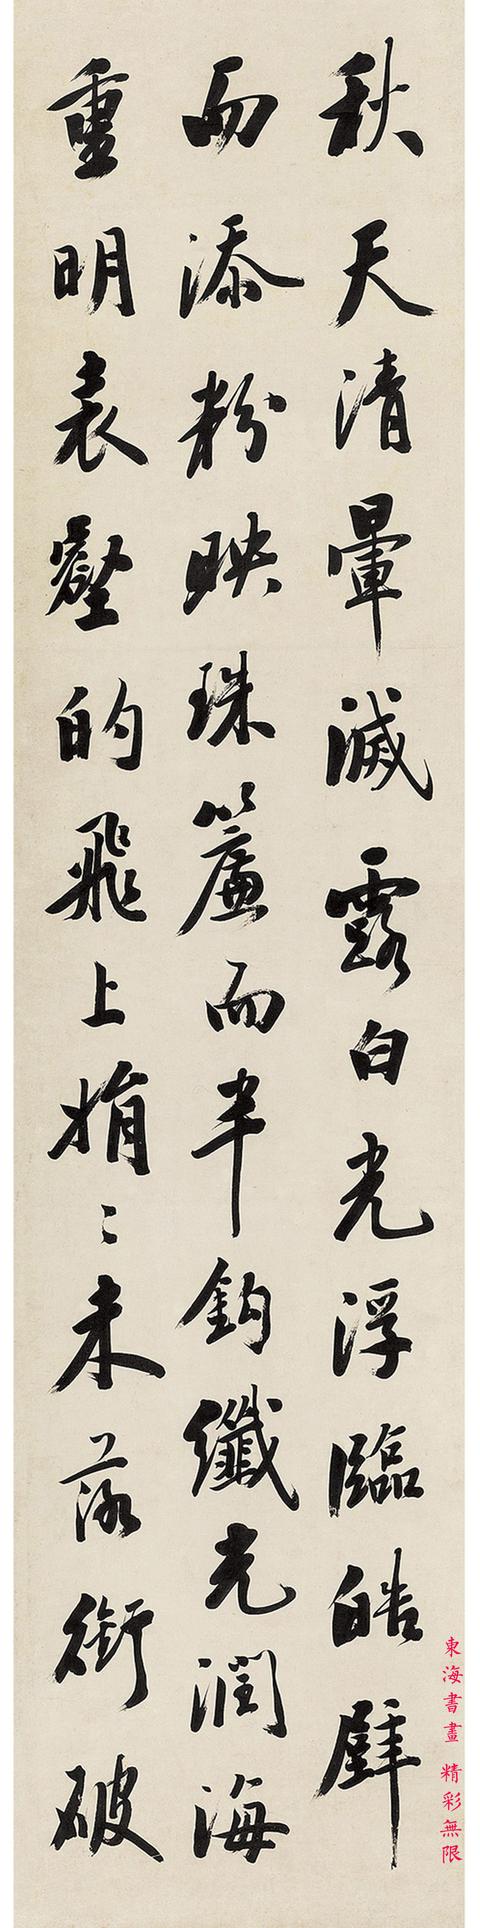 秋天清暈滅露白光浮臨皓壁
而添粉映珠簾而半鈎纖光潤海
重明表壑的飛上娟〻未落銜破
東海書畫 精彩無限